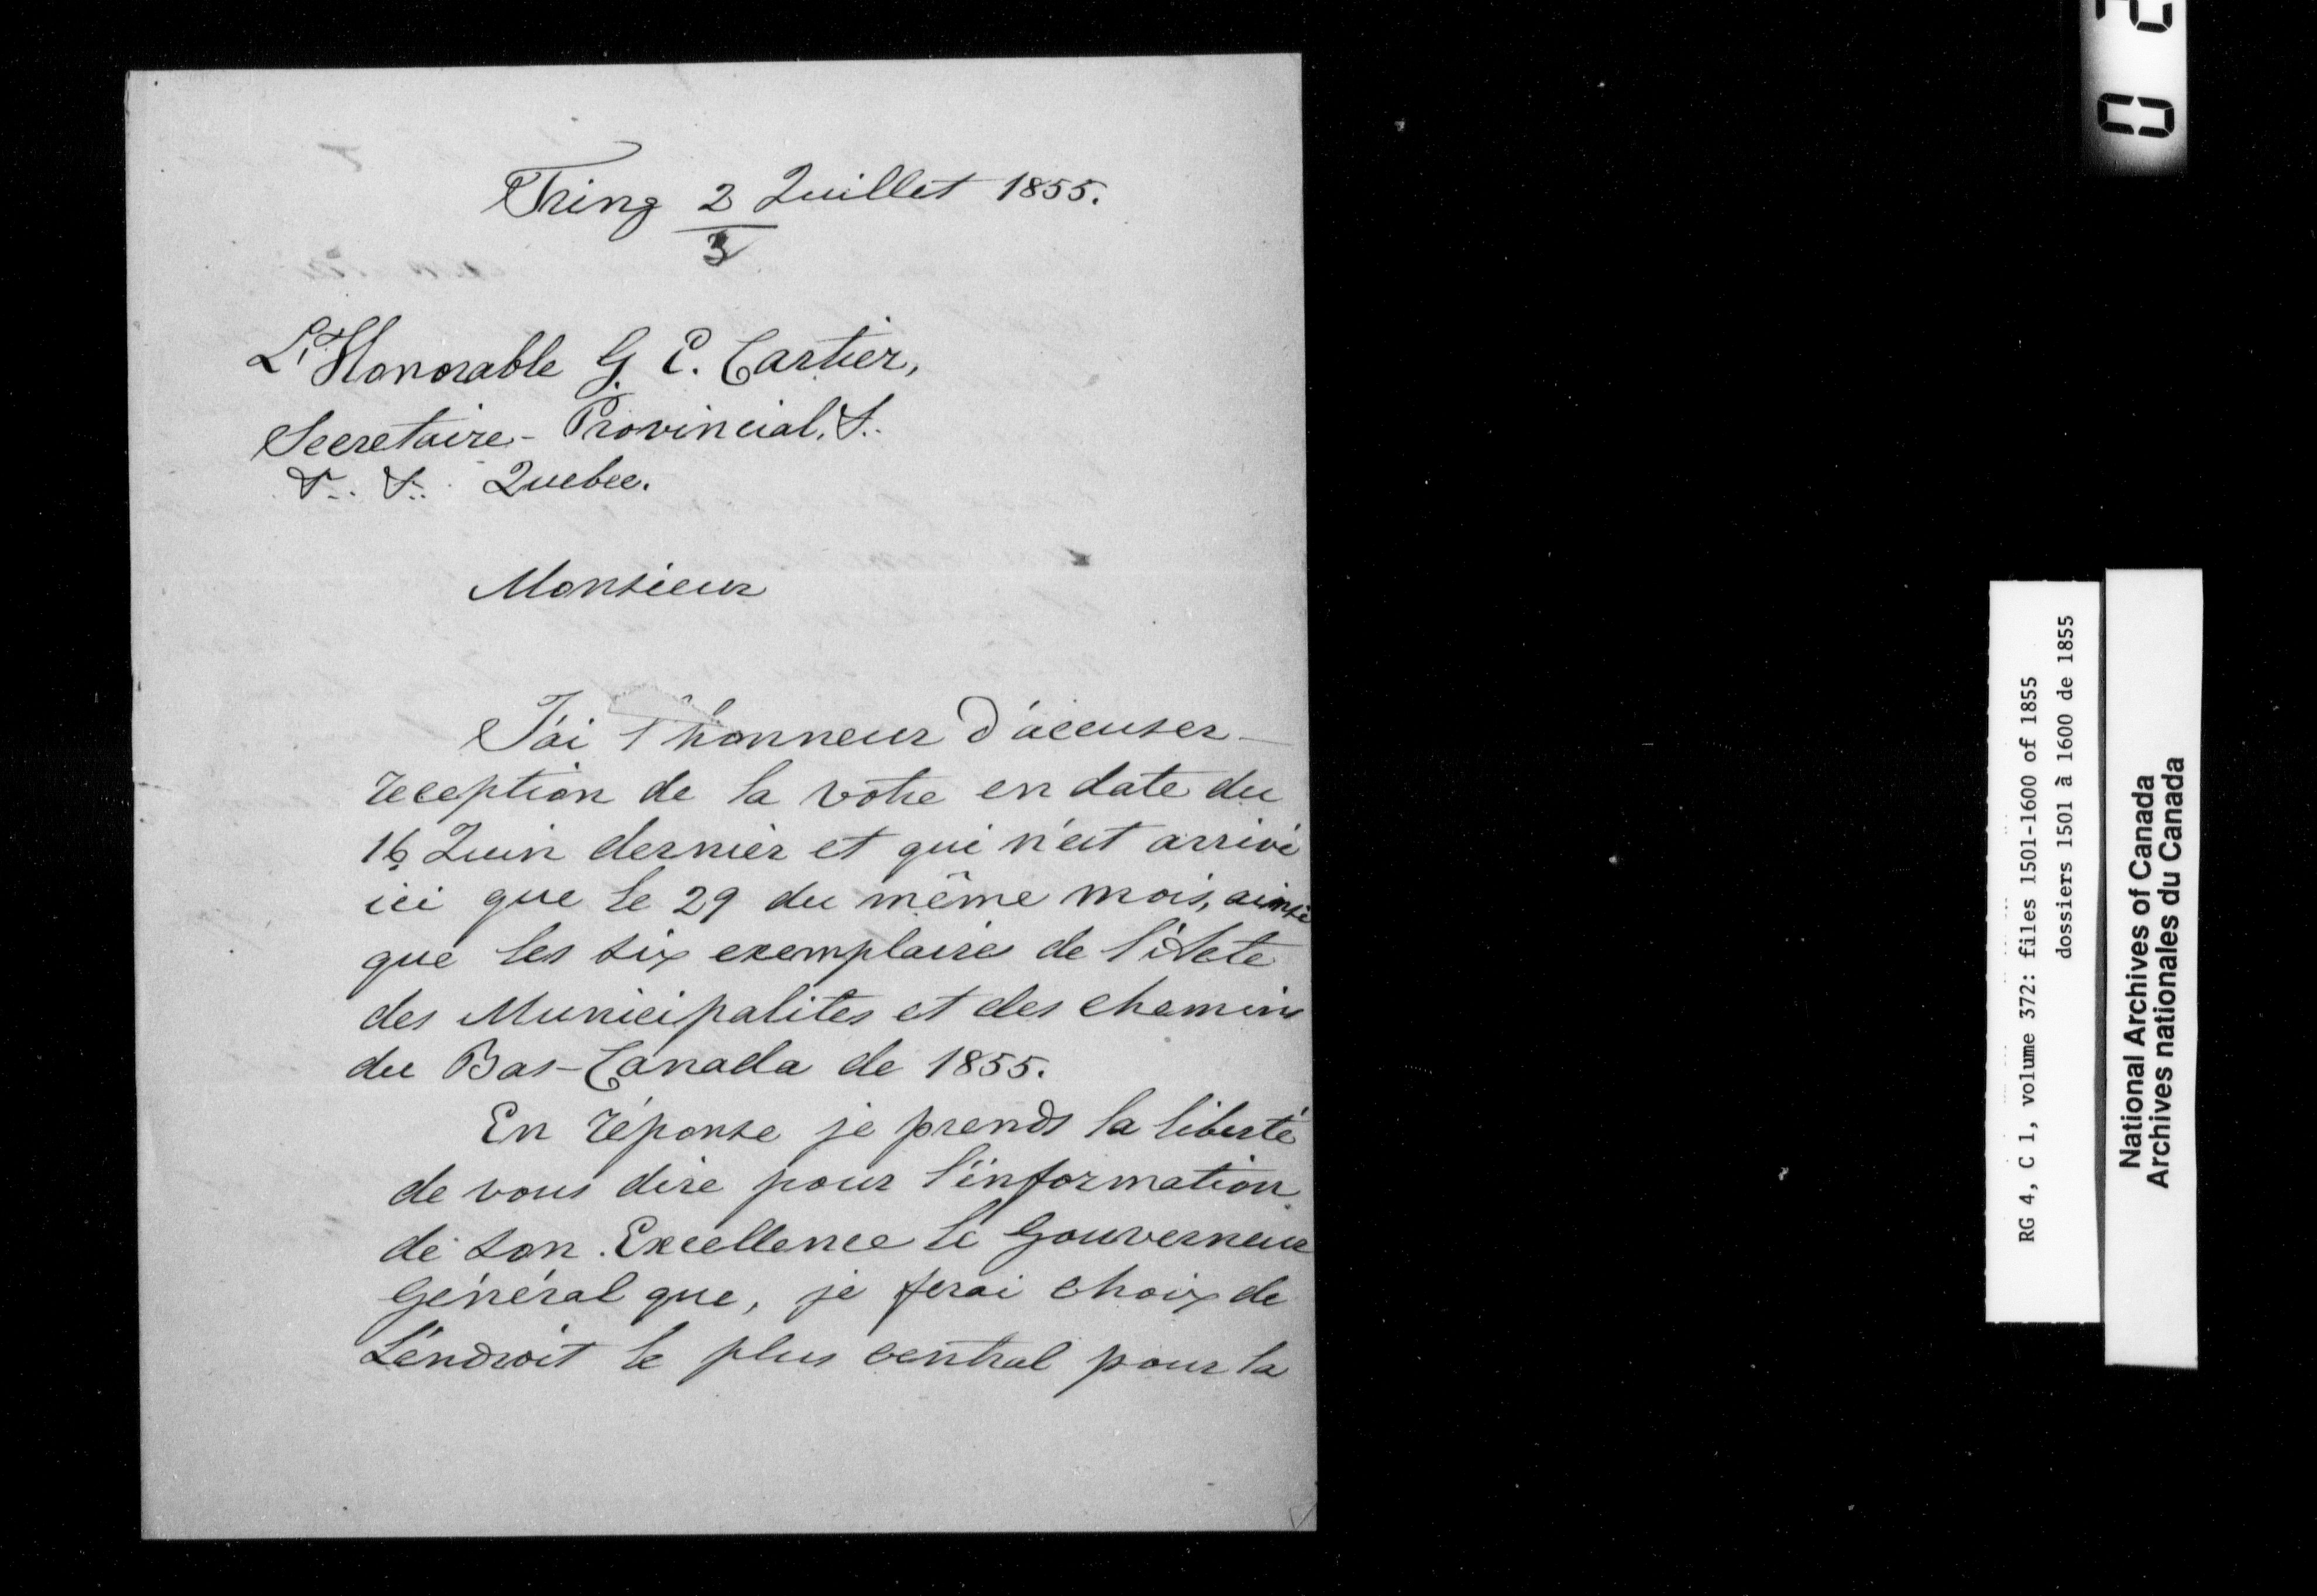 Tring 2 Juillet 1855.
3
L'Honorable G. E. Cartier,
Secretaire-Provincial, &.
&.. &.. Quebec.
Monsieur
J'ai l'honneur d'accuser
reception de la votre en date du
16 Juin dernier et qui n'est arrivé
ici que le 29 du même mois, ainsi
que les six exemplaires de l'Acte
des Municipalites et des chemins
du Bas-Canada de 1855.
En réponse je prends la liberté
de vous dire pour l'information
de son Excellence le Gouverneur
Général que, je ferai choix de
L'endroit le plus central pour la
0 2
RG 4, C 1, volume 372: files 1501-1600 of 1855
dossiers 1501 à 1600 de 1855
National Archives of Canada
Archives nationales du Canada